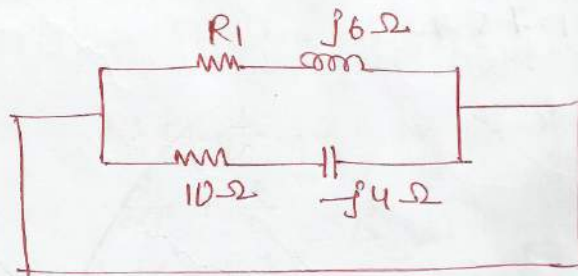 R1 j6Ω
10Ω -j4Ω